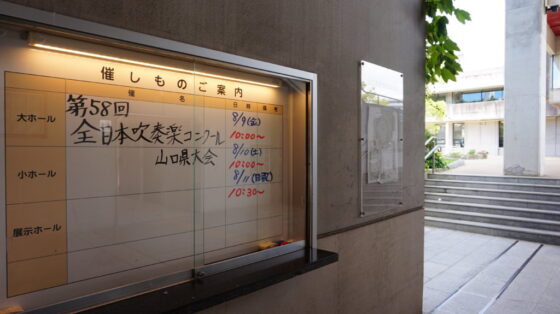 催しものご案内
催 名 日時 備考
大ホール
第58回
全日本吹奏楽コンクール
山口県大会
8/9(金)
10:00~
8/10(土)
10:00~
8/11(日祝)
10:30~
小ホール
展示ホール